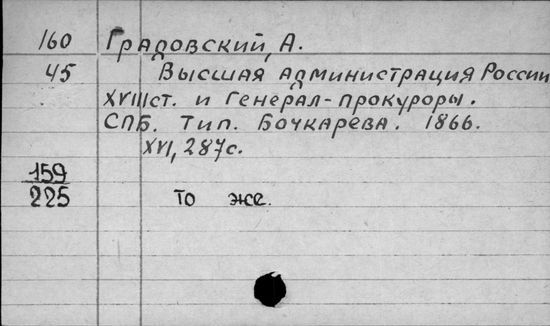 160 Градовский, А.
45 Высшая администрация России
XVIIIст. и Генерал-прокуроры.
СПБ. Тип. Бочкарева. 1866.
XVI, 287с.
159
225 То же.